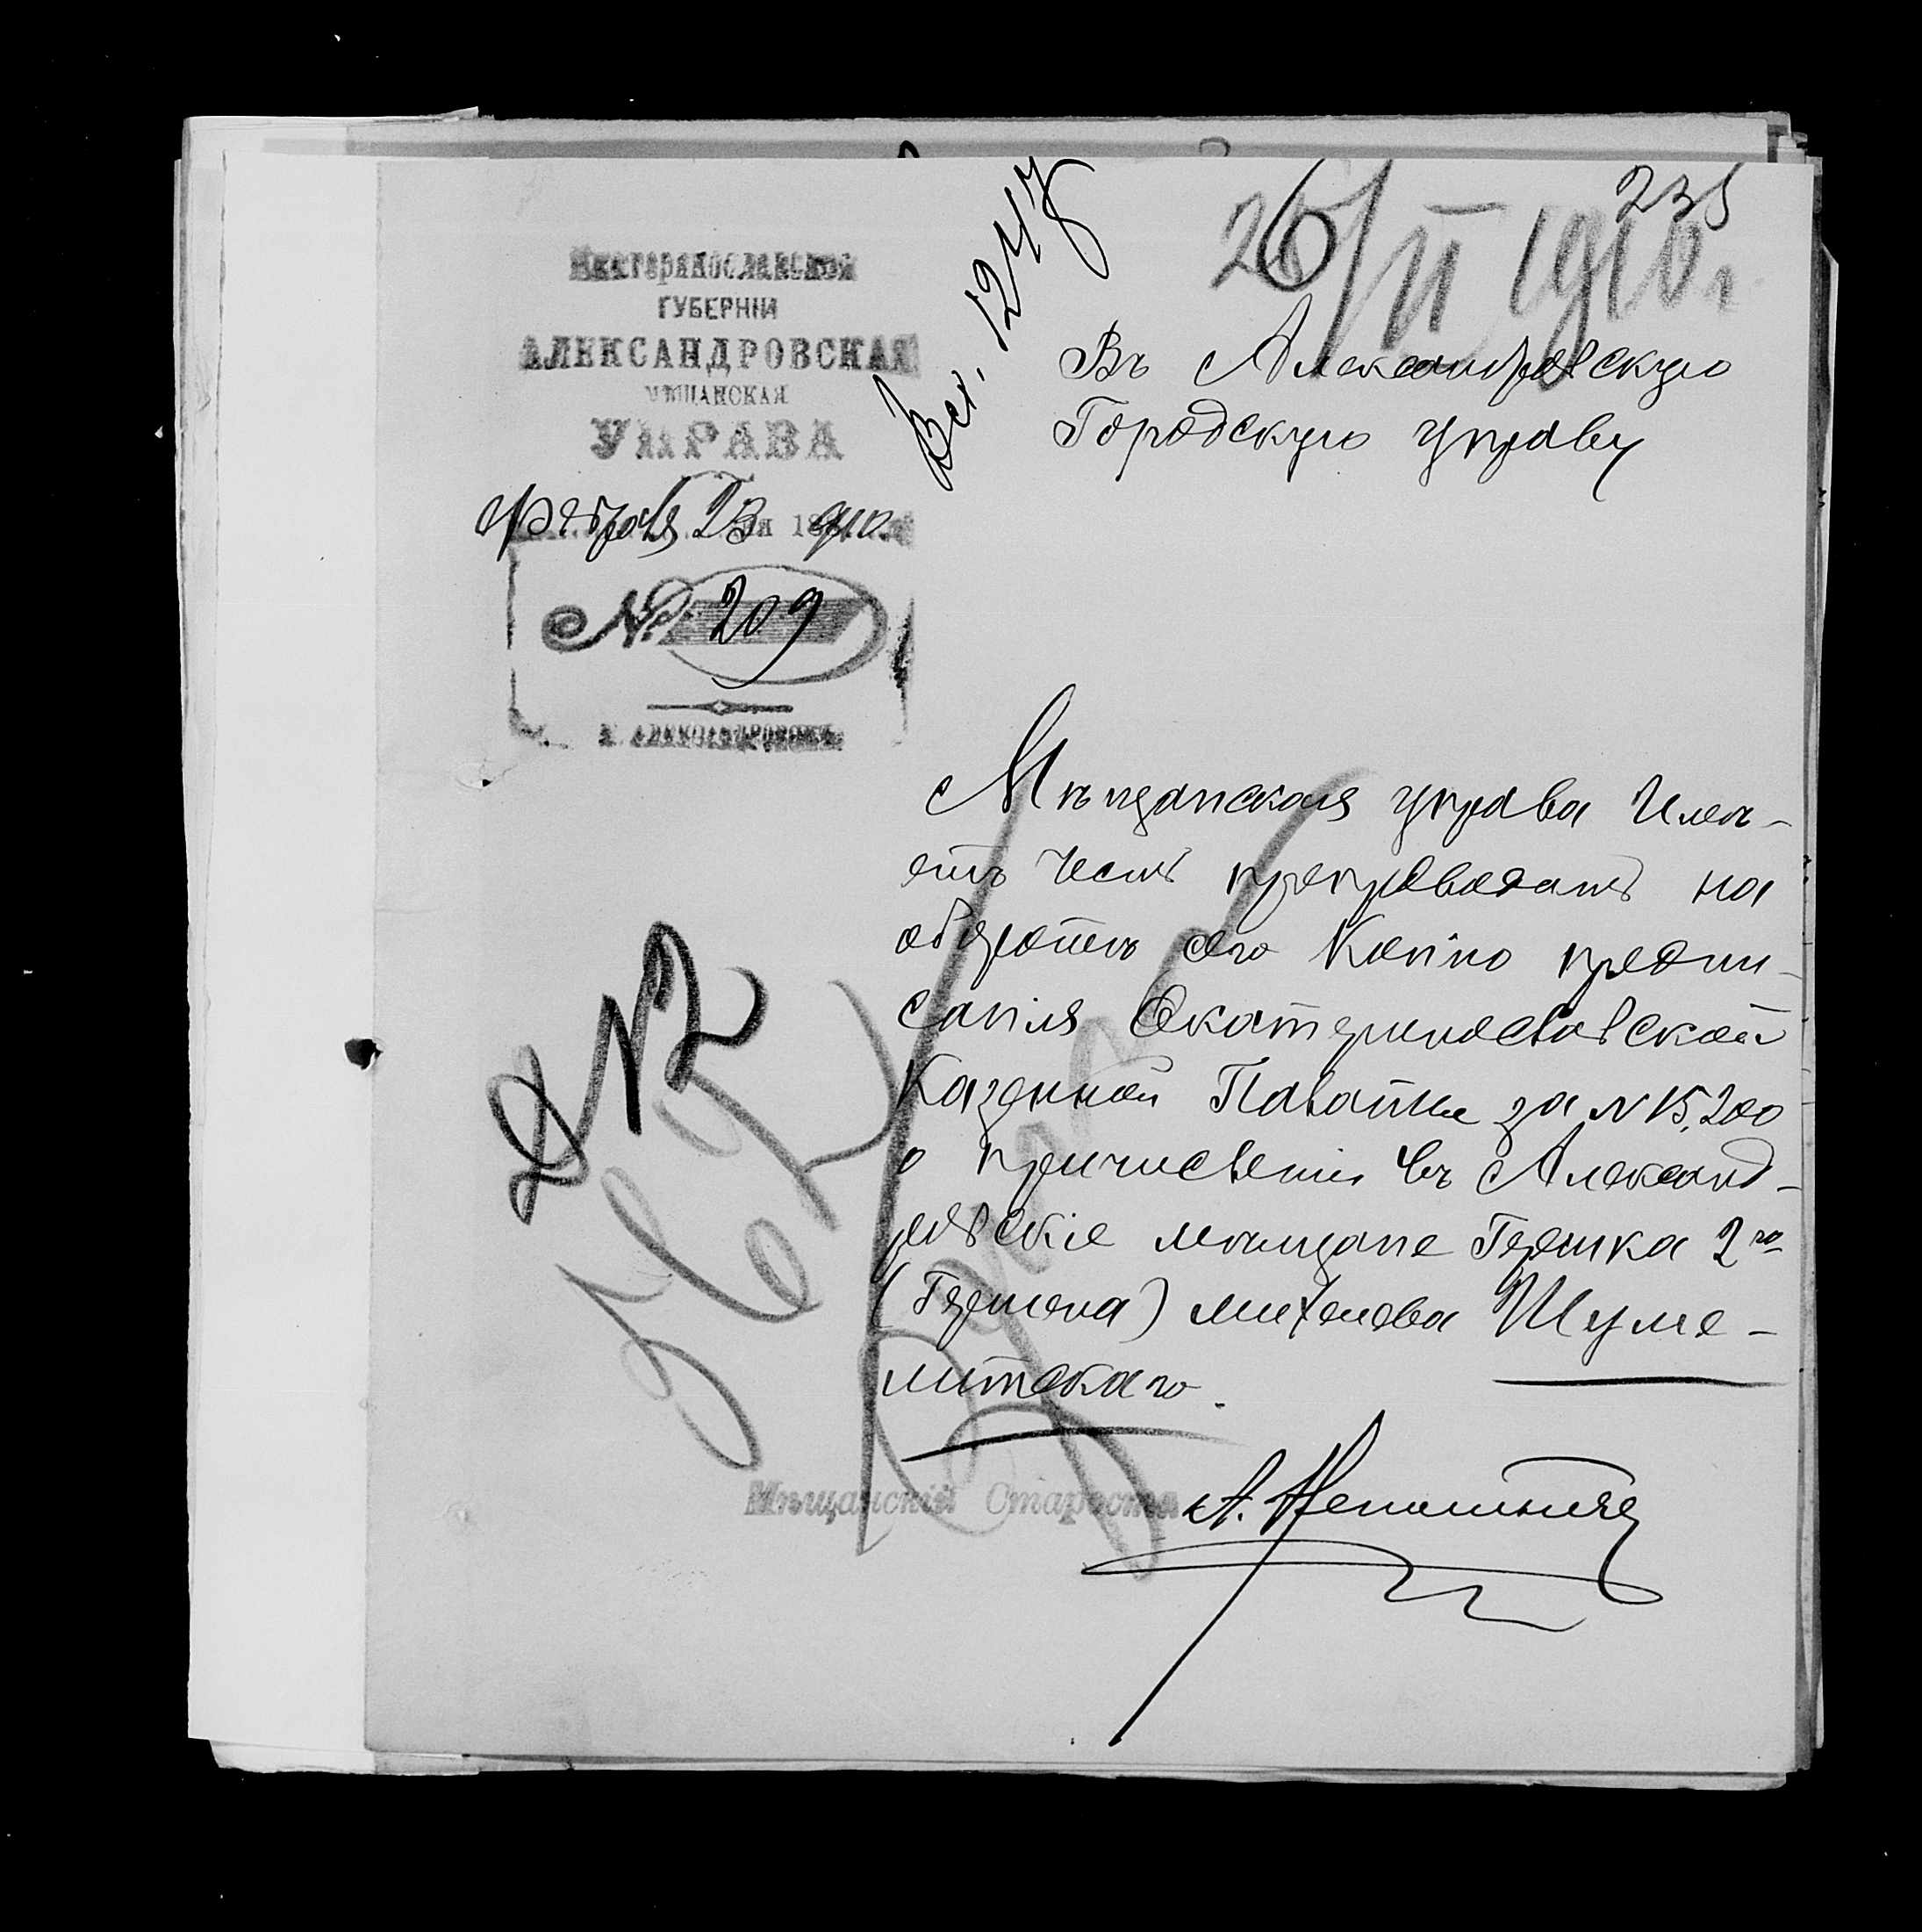 235
26/II 1910 г.
Вх. 1247
Екатеринославской
ГУБЕРНІИ
АЛЕКСАНДРОВСКАЯ
МѢЩАНСКАЯ
УПРАВА
Февраля 23 дня 1910 г.
№ 209
г. АЛЕКСАНДРОВСКЪ
Въ Александровскую
Городскую управу
Мѣщанская управа Имѣ-
етъ честь препроводить на
оборотѣ сего Копію предпи-
санія Екатеринославской
Казенной Палаты за № 15,200
о причисленіи въ Александ-
ровскіе мѣщане Гершка 2го
(Гершона) Михелева Шуме-
литскаго.
Мѣщанскій Староста А.